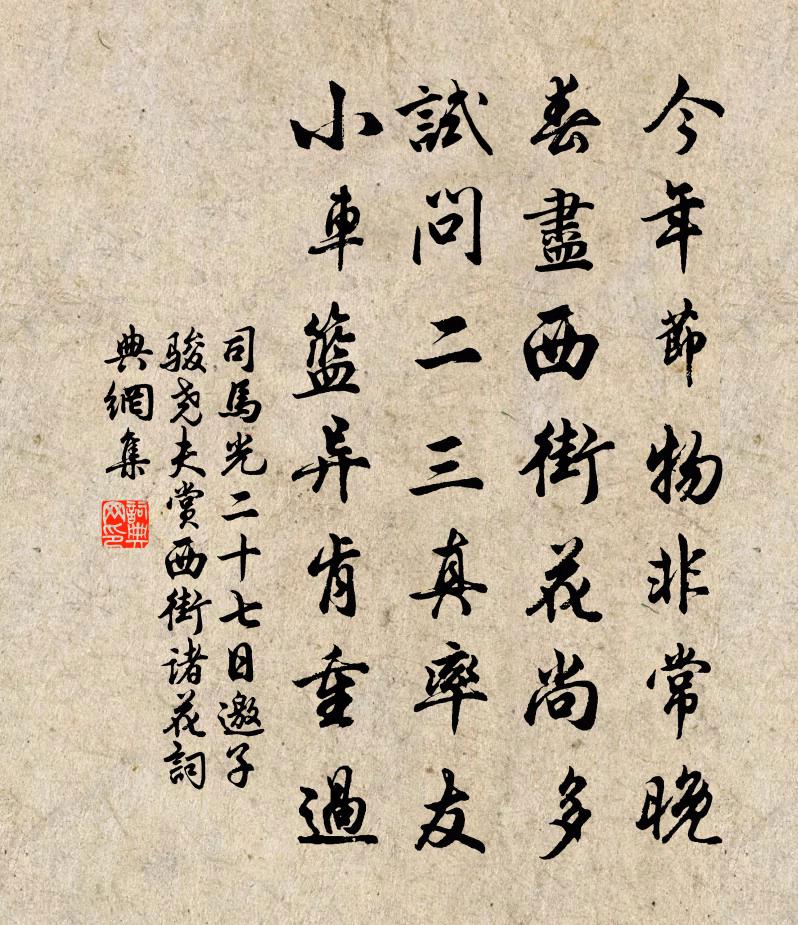 今年節物非常晚
春盡西街花尚多
試問二三真率友
小車籃异肯重過
司馬光二十七日邀子
駿尧夫賞西街諸花詞
典網集
詞典
网印